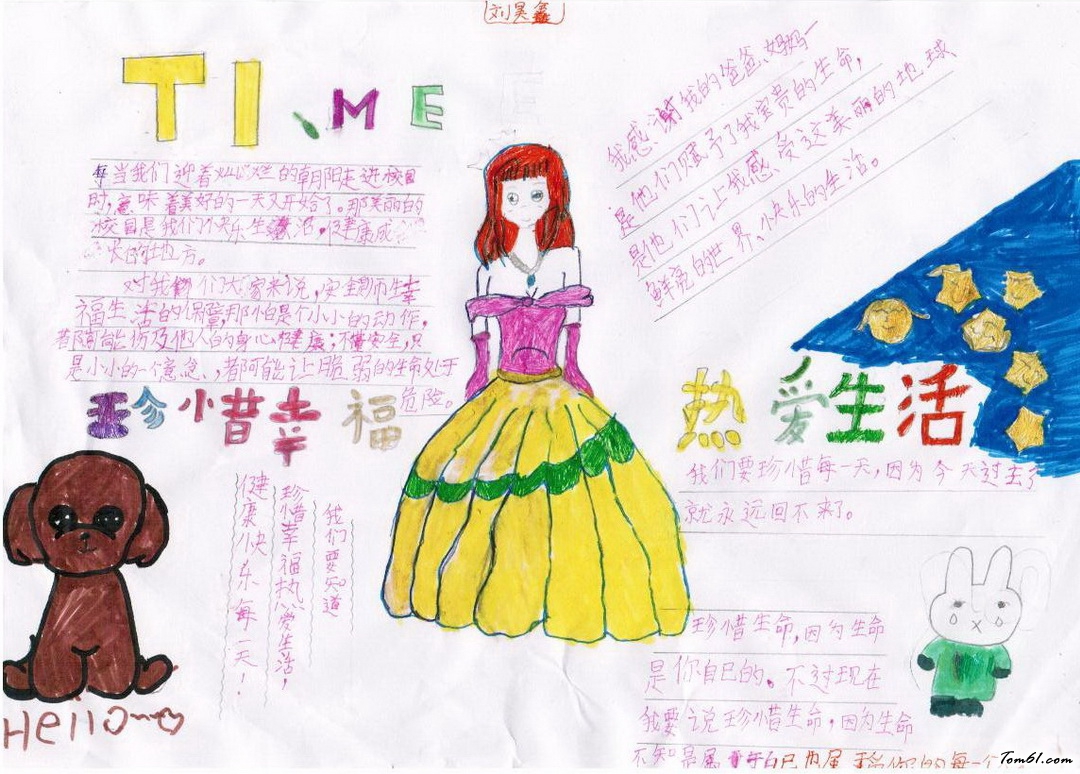 刘昊鑫
TIME
每当我们迎着灿烂的朝阳走进校园
时，意味着美好的一天又开始了。那美丽的
校园是我们快乐生活，健康成
长的地方。
对我们大家来说，安全是幸
福生活的保障，哪怕是个小小的动作，
都可能伤及他人的身心健康；不
是小小的一个意念，都可能让脆弱的生命处于
危险。
我感谢我的爸爸、妈妈
是他们赋予了我宝贵的生命，
是他们让我感受这美丽的地球
鲜亮的世界、快乐的生活。
珍惜幸福
热爱生活
我们要珍惜每一天，因为今天过去了
就永远回不来了。
我们要知道
珍惜幸福热爱生活，
健康快乐每一天！
Hello
珍惜生命，因为生命
是你自己的。不过现在
我要说珍惜生命，因为生命
不知是属
你的每一个
Tom61.com